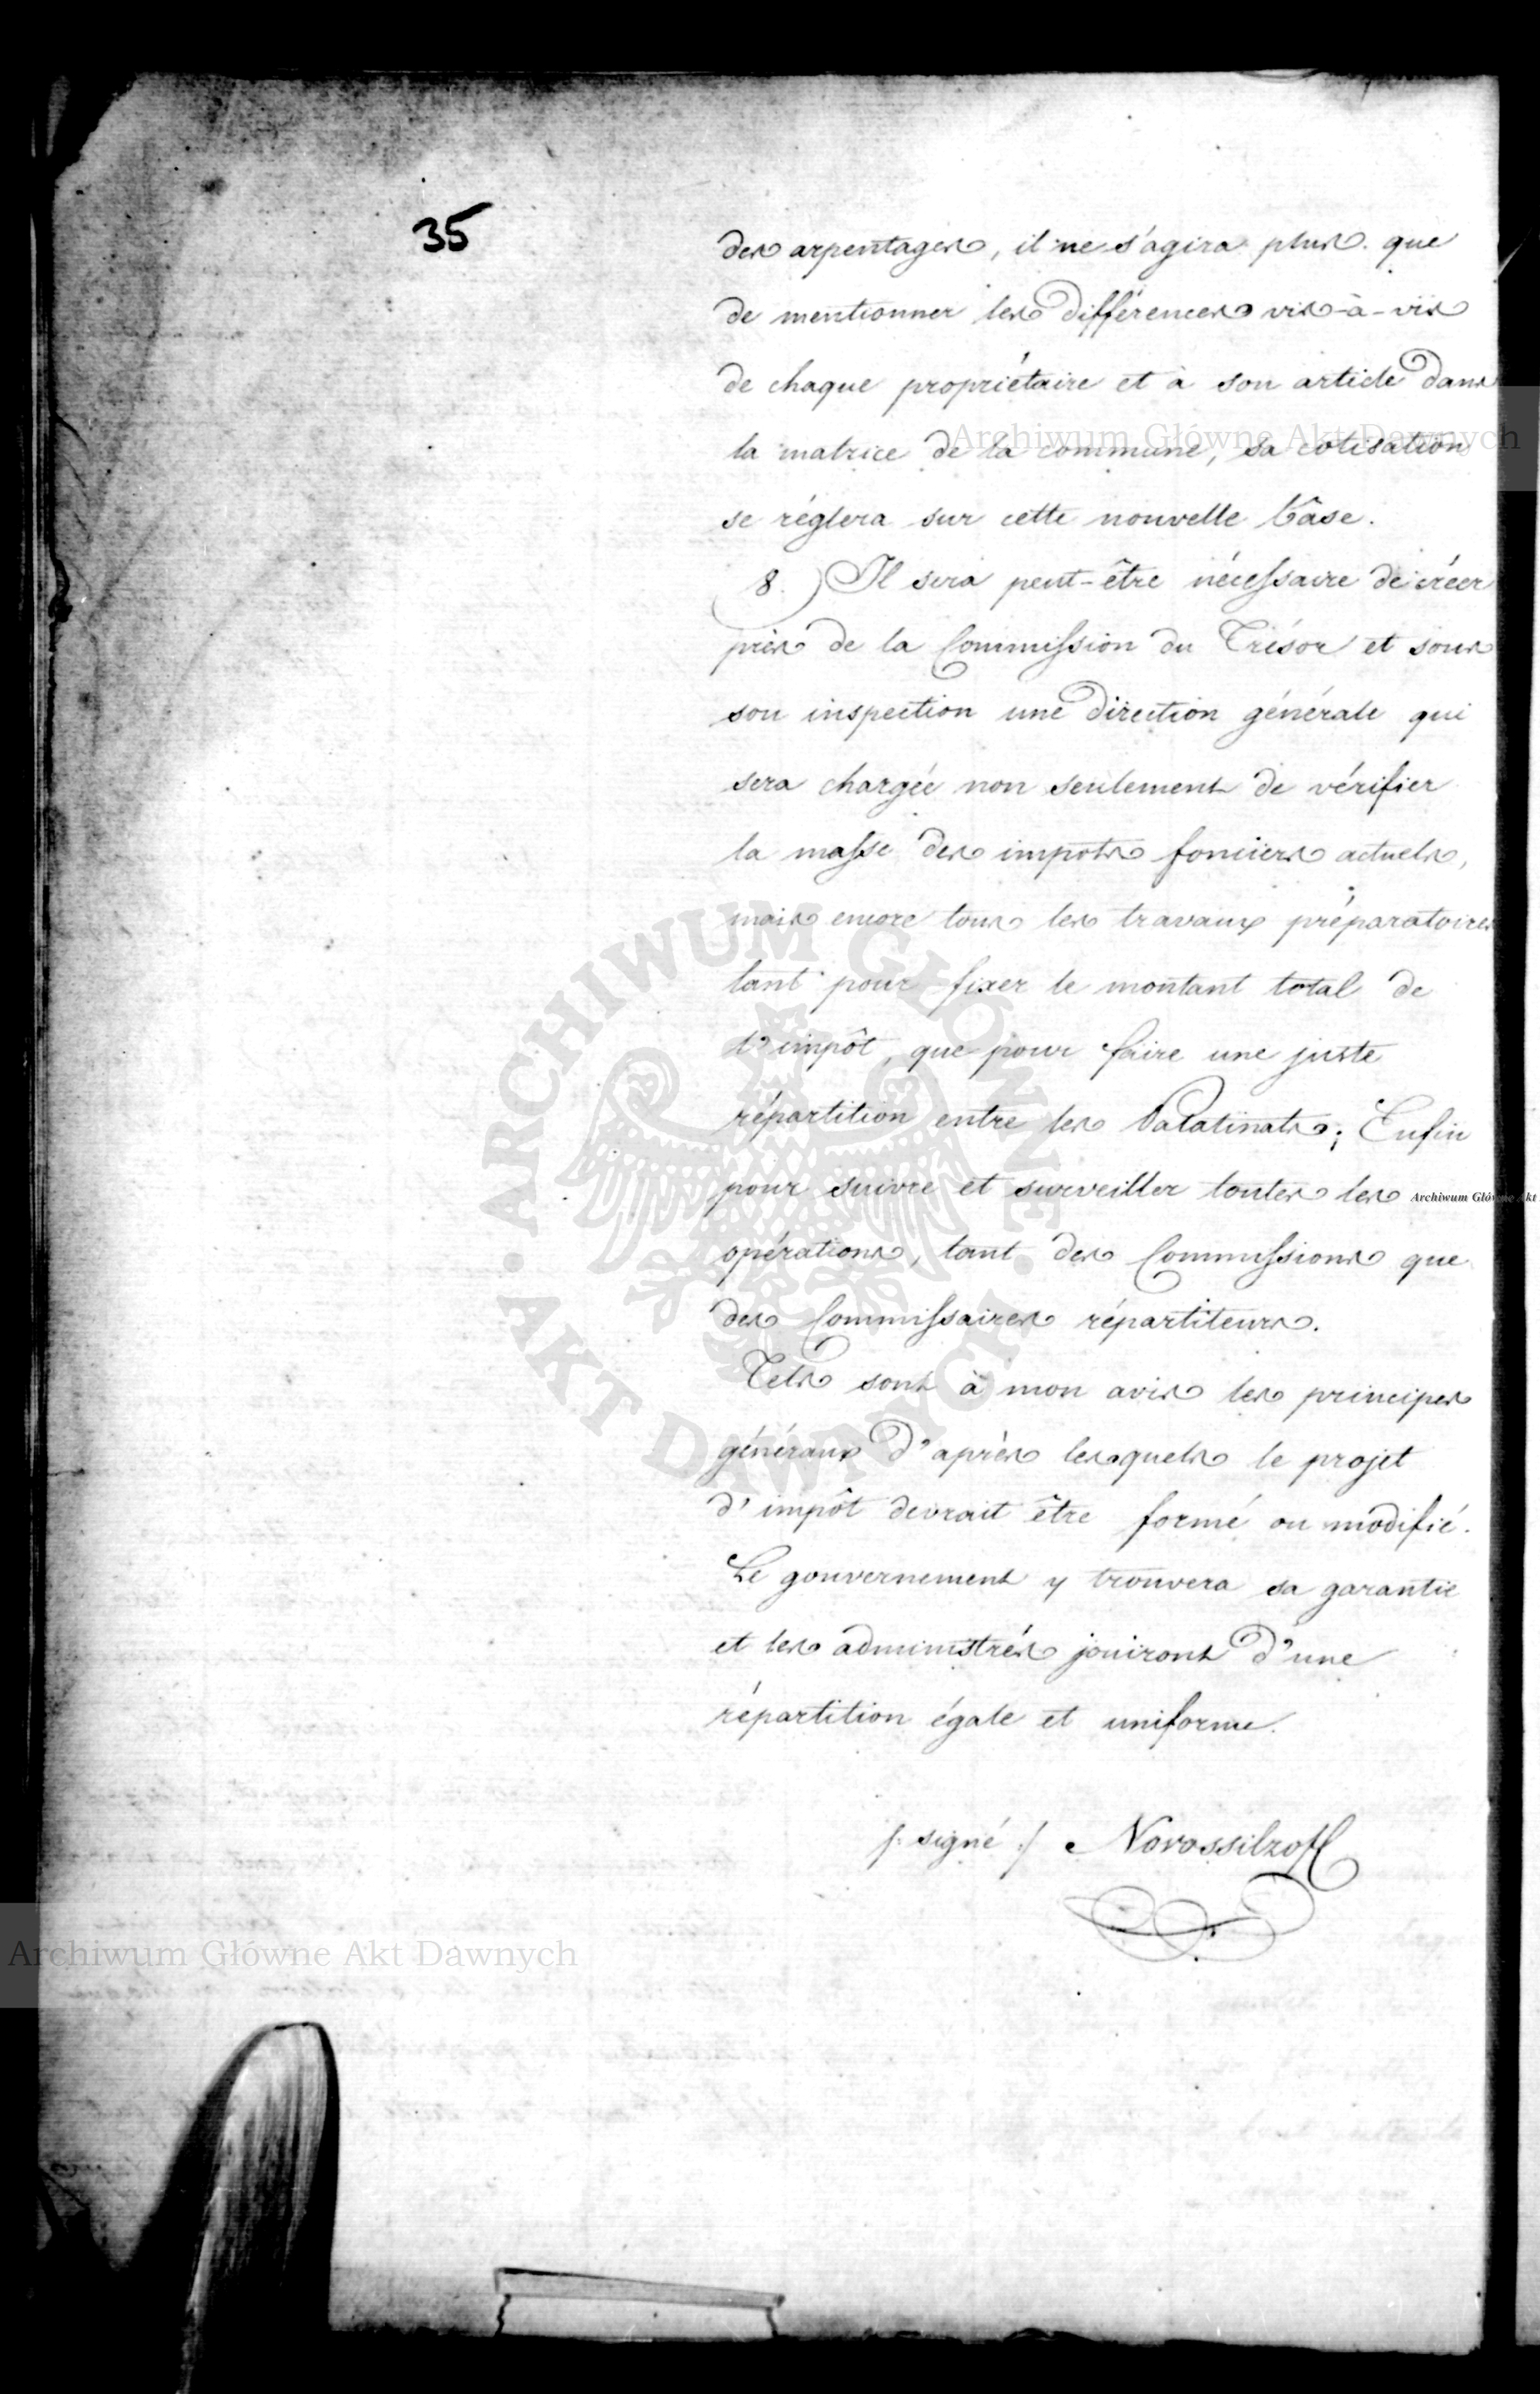 35
des arpentages, il ne s'agira plus que
de mentionner les différences vis-à-vis
de chaque propriétaire et à son article dans
la matrice de la commune, sa cotisation
se réglera sur cette nouvelle bâse.
8.) Il sera peut-être nécessaire de créer
près de la Commission du Trésor et sous
son inspection une direction générale qui
sera chargée non seulement de vérifier
la masse des impots fonciers actuels,
mais encore tous les travaux préparatoires
tant pour fixer le montant total de
l'impôt, que pour faire une juste
répartition entre les Palatinats; Enfin
pour suivre et surveiller toutes les
opérations, tant des Commissions que
des Commissaires répartiteurs.
Tels sont à mon avis les principes
généraux d'après lesquels le projet
d'impôt devrait être formé ou modifié.
Le gouvernement y trouvera sa garantie
et les administrés jouiront d'une
répartition égale et uniforme.
/: signé :/ Novossilzoff
Archiwum Główne Akt Dawnych
Archiwum Główne Akt
ARCHIWUM GŁÓWNE AKT DAWNYCH
Archiwum Główne Akt Dawnych